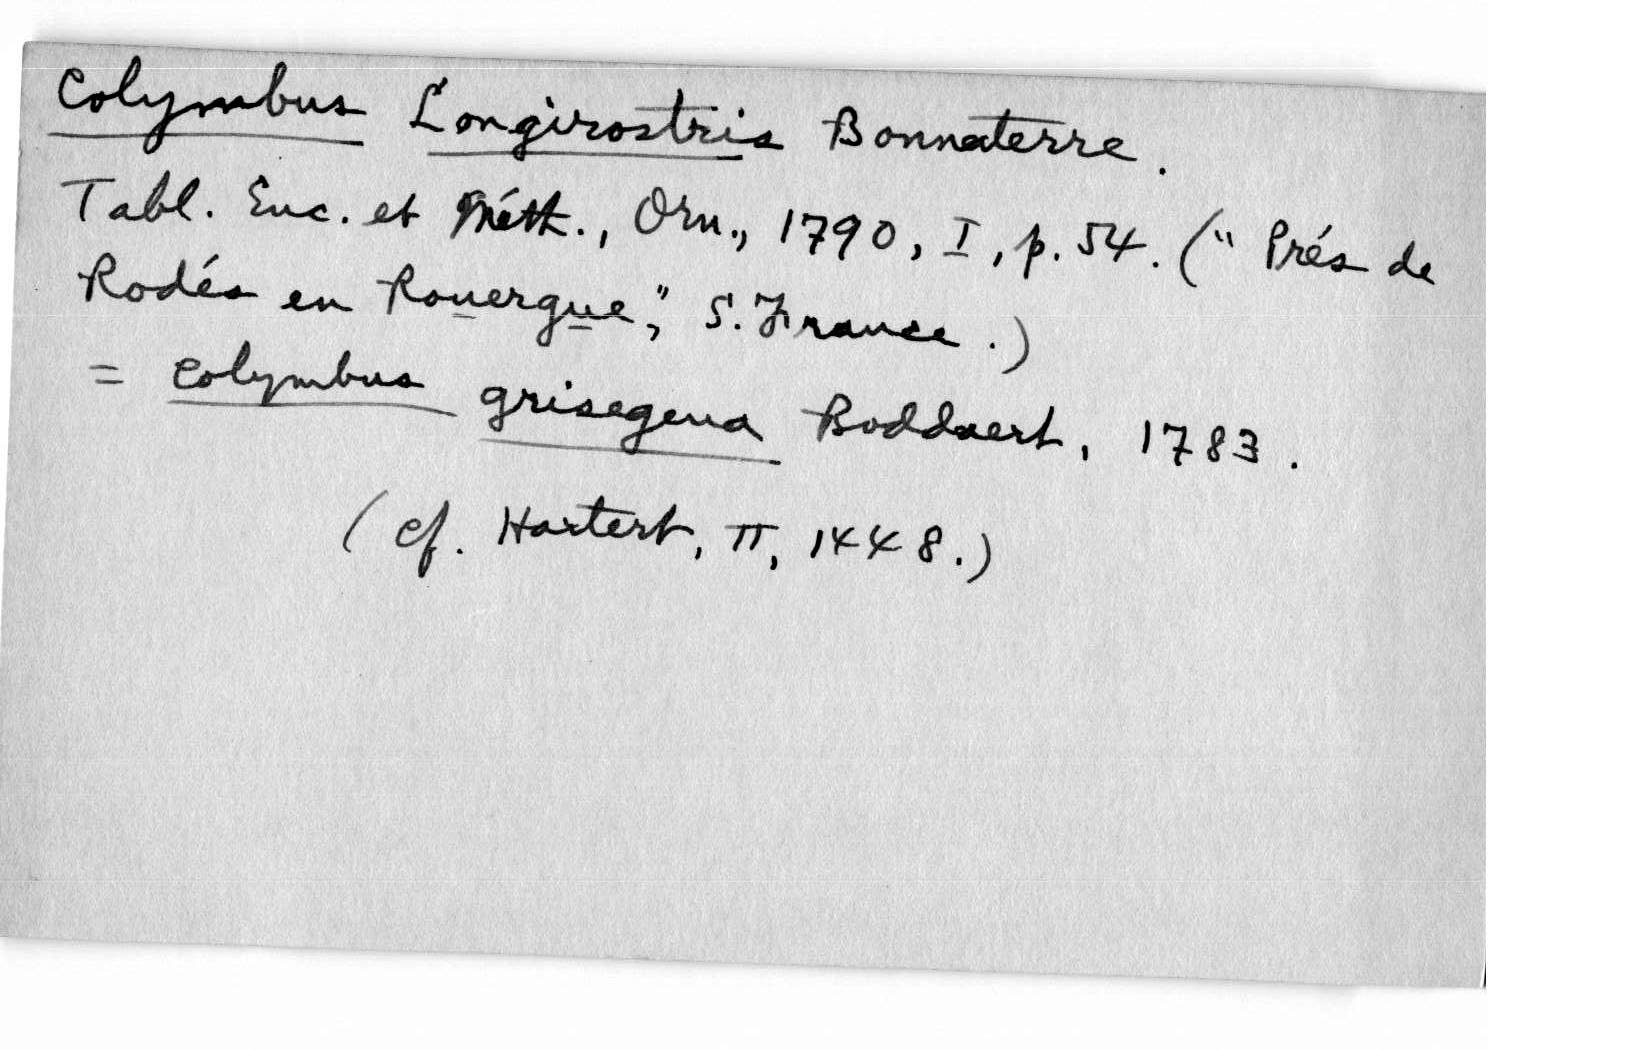 Colymbus Longirostris Bonnaterre.
Tabl. Enc. et Méth., Orn., 1790, I, p. 54. ("Prés de
Rodés en Rouergue," S. France.)
= Colymbus grisegena Boddaert, 1783.
(Cf. Hartert, II, 1448.)